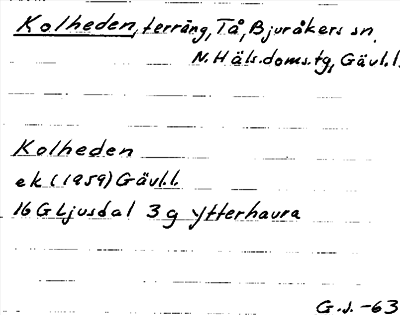 Kolheden, terräng, Tå, Bjuråkers sn.
N. Häls. doms.tg, Gävl.l.
Kolheden
ek (1959) Gävl.l.
16 G Ljusdal 3 g Ytterhavra
G.J. -63